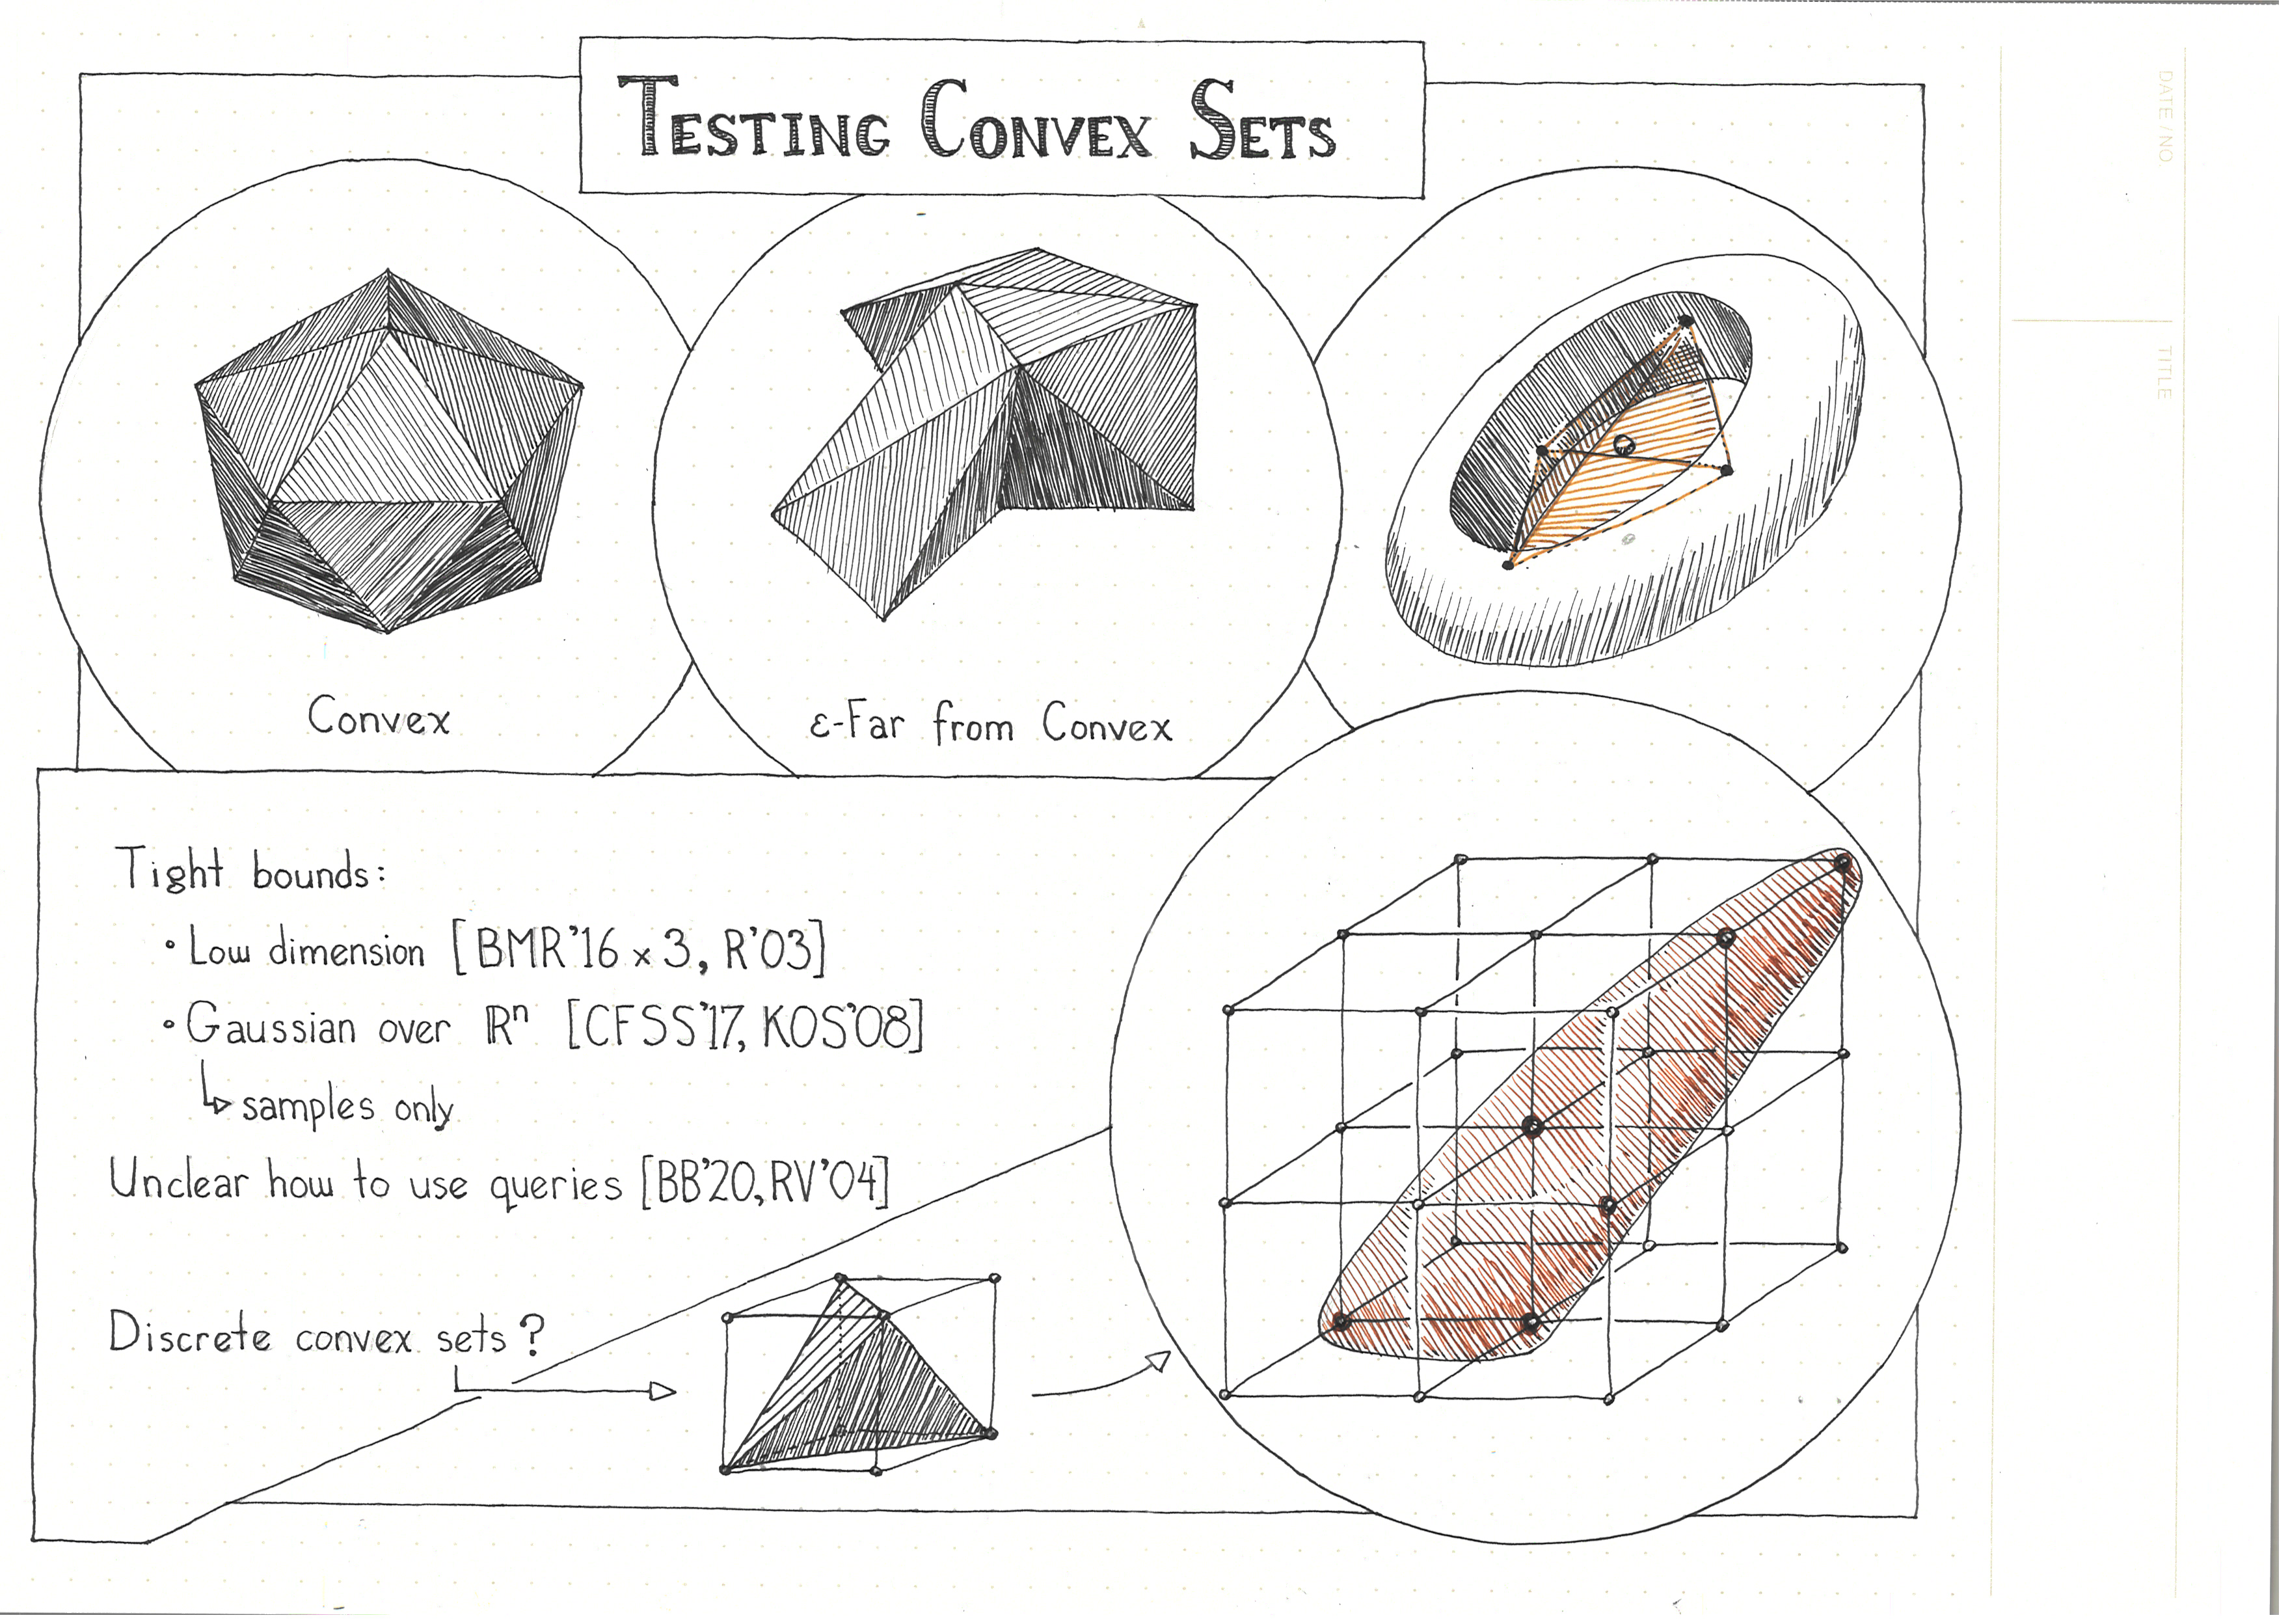 TESTING CONVEX SETS
Convex
ε-Far from Convex
Tight bounds:
• Low dimension [BMR'16 x 3, R'03]
• Gaussian over ℝⁿ [CFSS'17, KOS'08]
↳ samples only
Unclear how to use queries [BB'20, RV'04]
Discrete convex sets?
DATE/NO.
TITLE